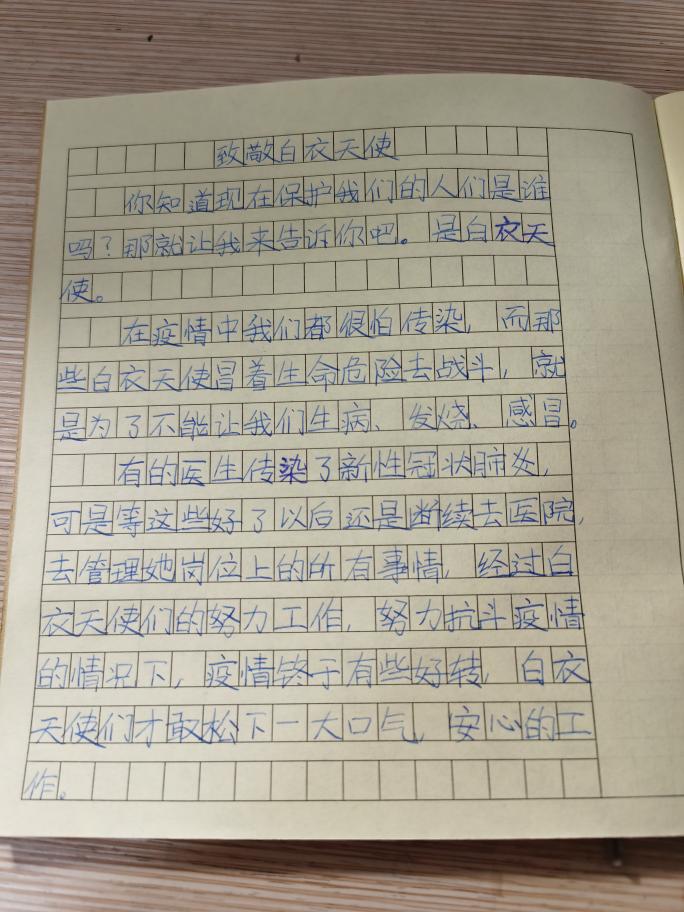 致敬白衣天使
你知道现在保护我们的人们是谁
吗？那就让我来告诉你吧。是白衣天
使。
在疫情中我们都很怕传染，而那
些白衣天使冒着生命危险去战斗，就
是为了不能让我们生病、发烧、感冒。
有的医生传染了新性冠状肺炎，
可是等这些好了以后还是断续去医院，
去管理她岗位上的所有事情，经过白
衣天使们的努力工作，努力抗斗疫情
的情况下，疫情终于有些好转，白衣
天使们才敢松下一大口气，安心的工
作。